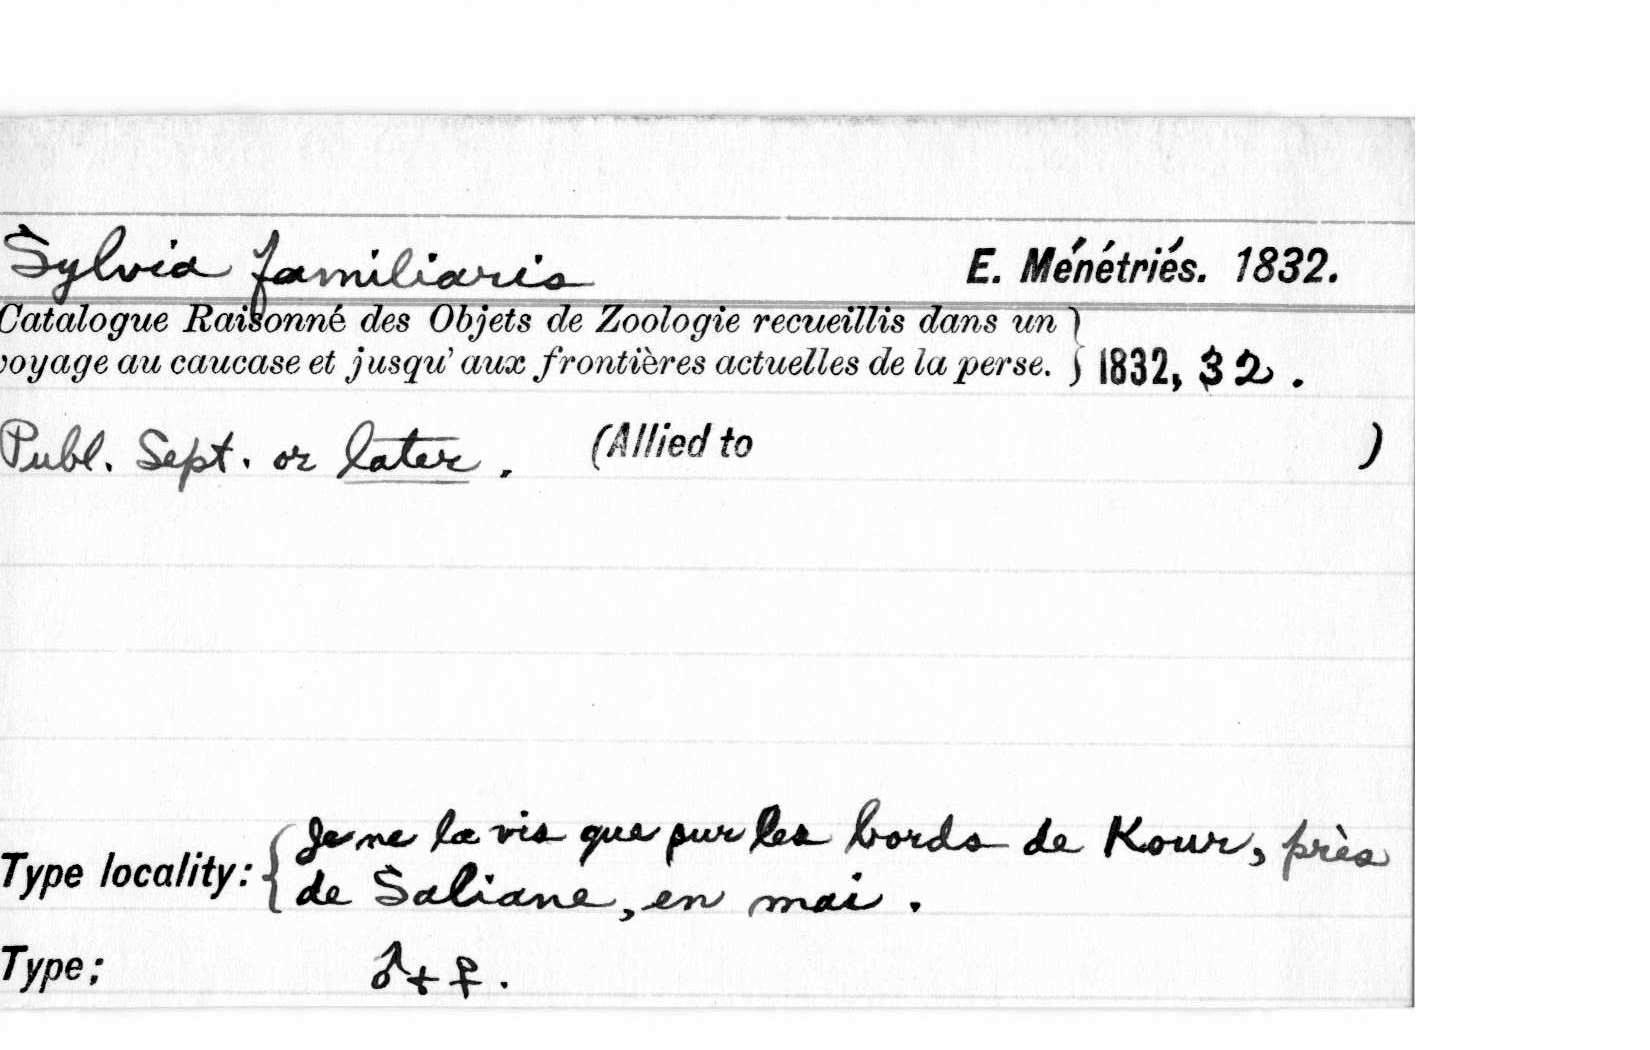 Sylvia familiaris E. Ménétriés. 1832.
Catalogue Raisonné des Objets de Zoologie recueillis dans un
voyage au caucase et jusqu' aux frontières actuelles de la perse. } 1832, 32.
Publ. Sept. or later. (Allied to )
Je ne la vis que sur les bords de Kour, près
Type locality: { de Saliane, en mai.
Type; ♂ + ♀.